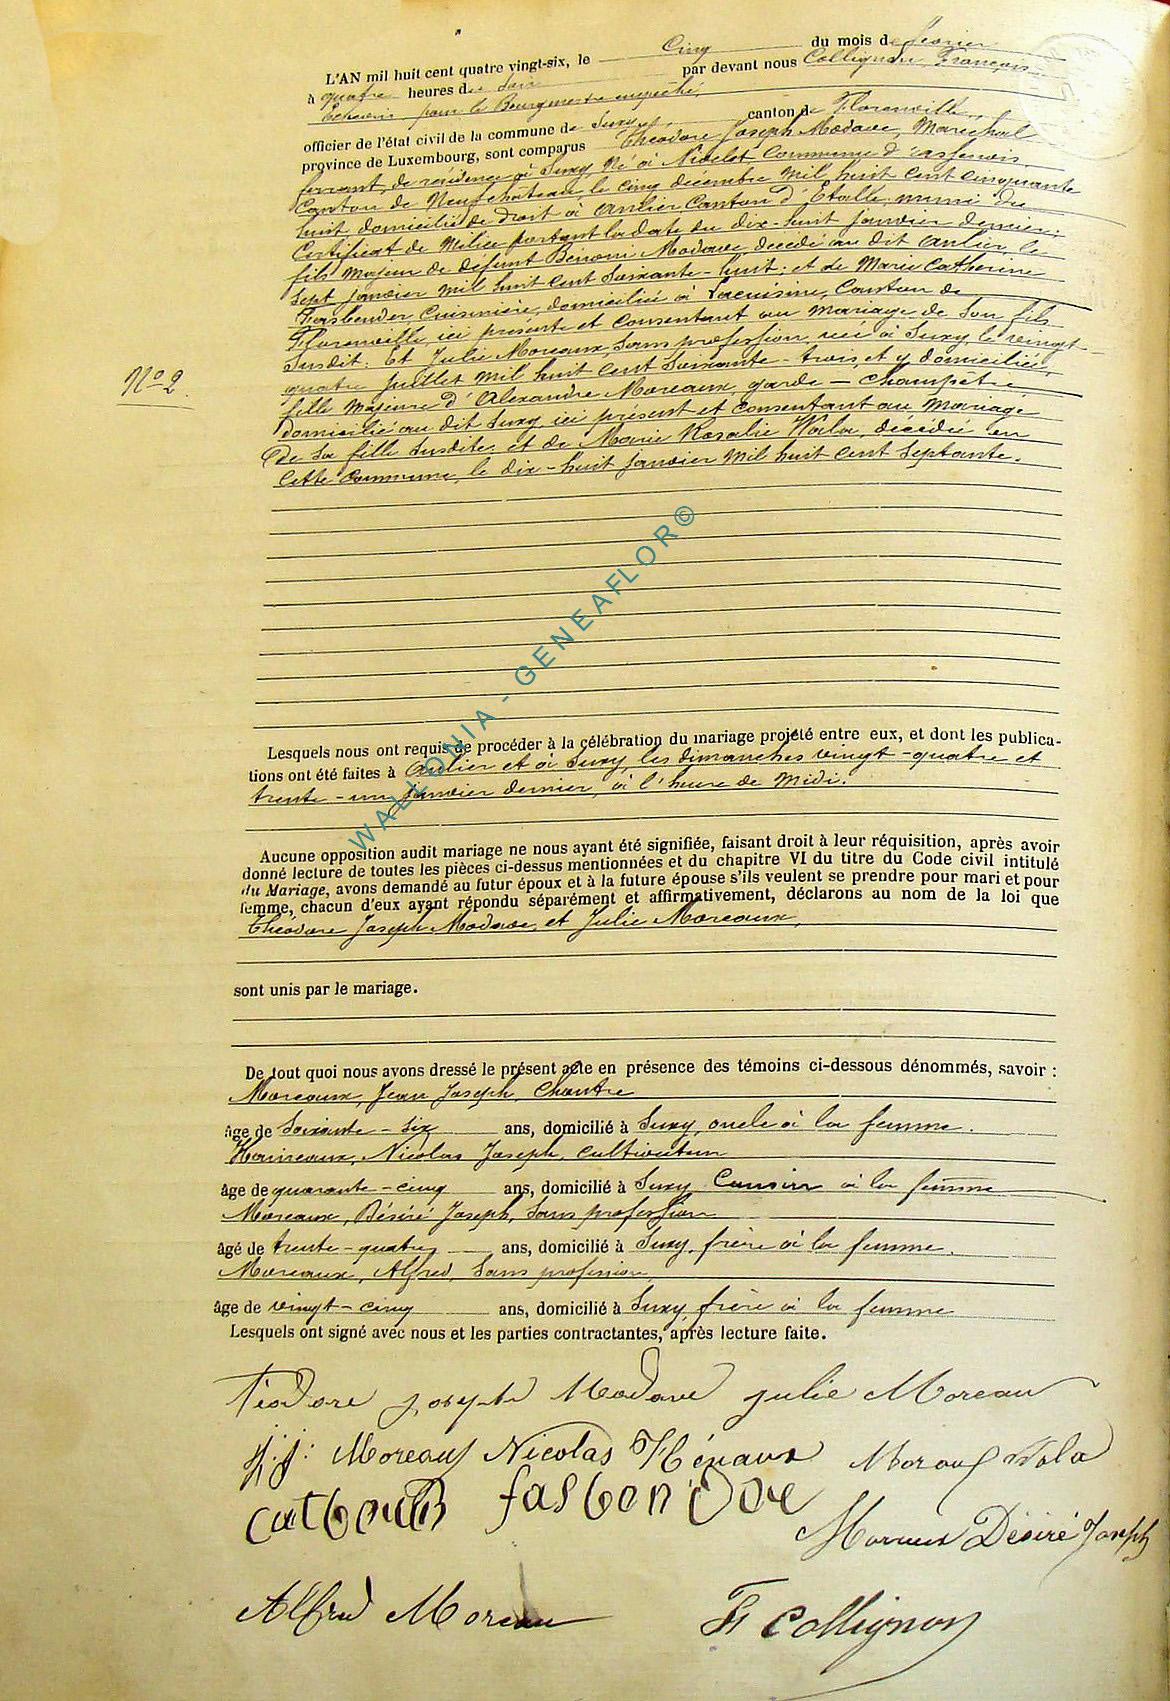 L'AN mil huit cent quatre vingt-six, le Cinq du mois de février
à quatre heures du soir par devant nous Collignon François
Echevin pour le Bourgmestre empêché,
officier de l'état civil de la commune de Suxy, canton de Florenville,
province de Luxembourg, sont comparus Théodore Joseph Modave, Maréchal
ferrant, de résidence à Suxy, Né à Nivelet, Commune d'assenois
Canton de Neufchâteau le cinq décembre mil huit cent cinquante
huit, domicilié de droit à Anlier Canton d'Etalle, muni du
Certificat de Milice portant la date du dix-huit janvier dernier;
fils majeur de défunt Modave, decédé au dit Anlier, le
sept janvier mil huit cent Soixante-huit; et de Marie Catherine
Fasbender Cuisinière, domiciliée à Lacuisine, Canton de
Florenville, ici présente et consentant au mariage de Son fils
Susdit; Et Julie Moreaux, Sans profession, née à Suxy, le vingt-
quatre Juillet mil huit cent Soixante-trois, et y domiciliée,
fille majeure d'Alexandre Moreaux, garde-champêtre
domicilié au dit Suxy ici présent et consentant au mariage
de Sa fille Susdite, et de Marie Rosalie Wala, décédée en
cette commune, le dix-huit janvier mil huit cent septante.
N° 2
Lesquels nous ont requis de procéder à la célébration du mariage projeté entre eux, et dont les publica-
tions ont été faites à Anlier et à Suxy, les dimanches vingt-quatre et
trente-un janvier dernier, à l'heure de Midi.
Aucune opposition audit mariage ne nous ayant été signifiée, faisant droit à leur réquisition, après avoir
donné lecture de toutes les pièces ci-dessus mentionnées et du chapitre VI du titre du Code civil intitulé
du Mariage, avons demandé au futur époux et à la future épouse s'ils veulent se prendre pour mari et pour
femme, chacun d'eux ayant répondu séparément et affirmativement, déclarons au nom de la loi que
Théodore Joseph Modave, et Julie Moreaux,
sont unis par le mariage.
De tout quoi nous avons dressé le présent acte en présence des témoins ci-dessous dénommés, savoir :
Moreaux, Jean Joseph, Chantre
âge de Soixante-six ans, domicilié à Suxy, oncle à la femme.
Haineaux, Nicolas Joseph, cultivateur
âge de quarante-cinq ans, domicilié à Suxy Cousin à la femme
Moreaux, Désiré Joseph, Sans profession
âgé de trente-quatre ans, domicilié à Suxy, frère à la femme.
Moreaux, Alfred, Sans profession
âge de vingt-cinq ans, domicilié à Suxy, frère à la femme
Lesquels ont signé avec nous et les parties contractantes, après lecture faite.
Téodore joseph Modave julie Moreau
j.j. Moreaux Nicolas Hénaux Moraux Wala
fasbender
Moreaux Désiré Joseph
Alfred Moreau F Collignon
WALLONIA - GENEAFLOR©